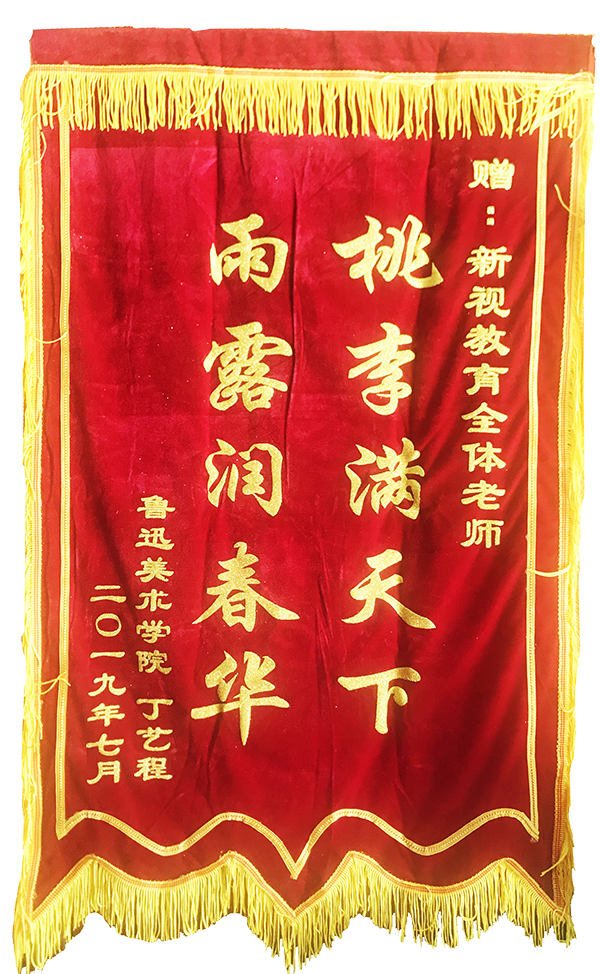 赠：新视教育全体老师
桃李满天下
雨露润春华
鲁迅美术学院 丁艺程
二〇一九年七月